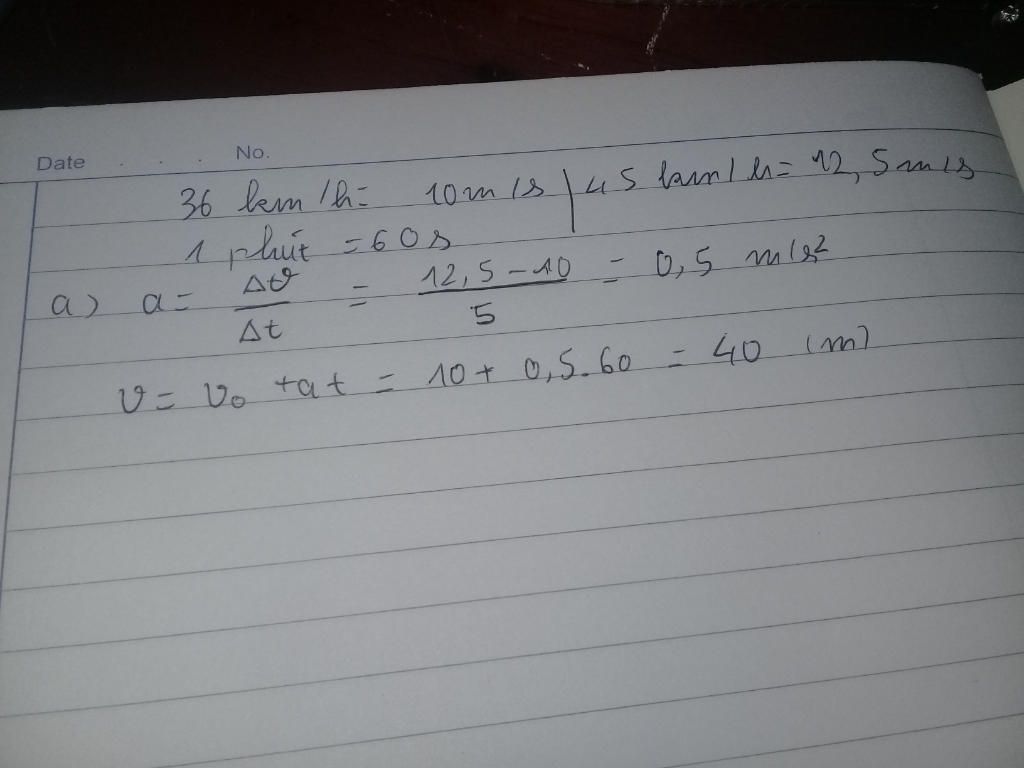 Date . . . No.
36 km/h = 10 m/s | 45 km/h = 12,5 m/s
1 phút = 60s
a) a = Δv/Δt = (12,5 - 10)/5 = 0,5 m/s²
v = v₀ + at = 10 + 0,5.60 = 40 (m)